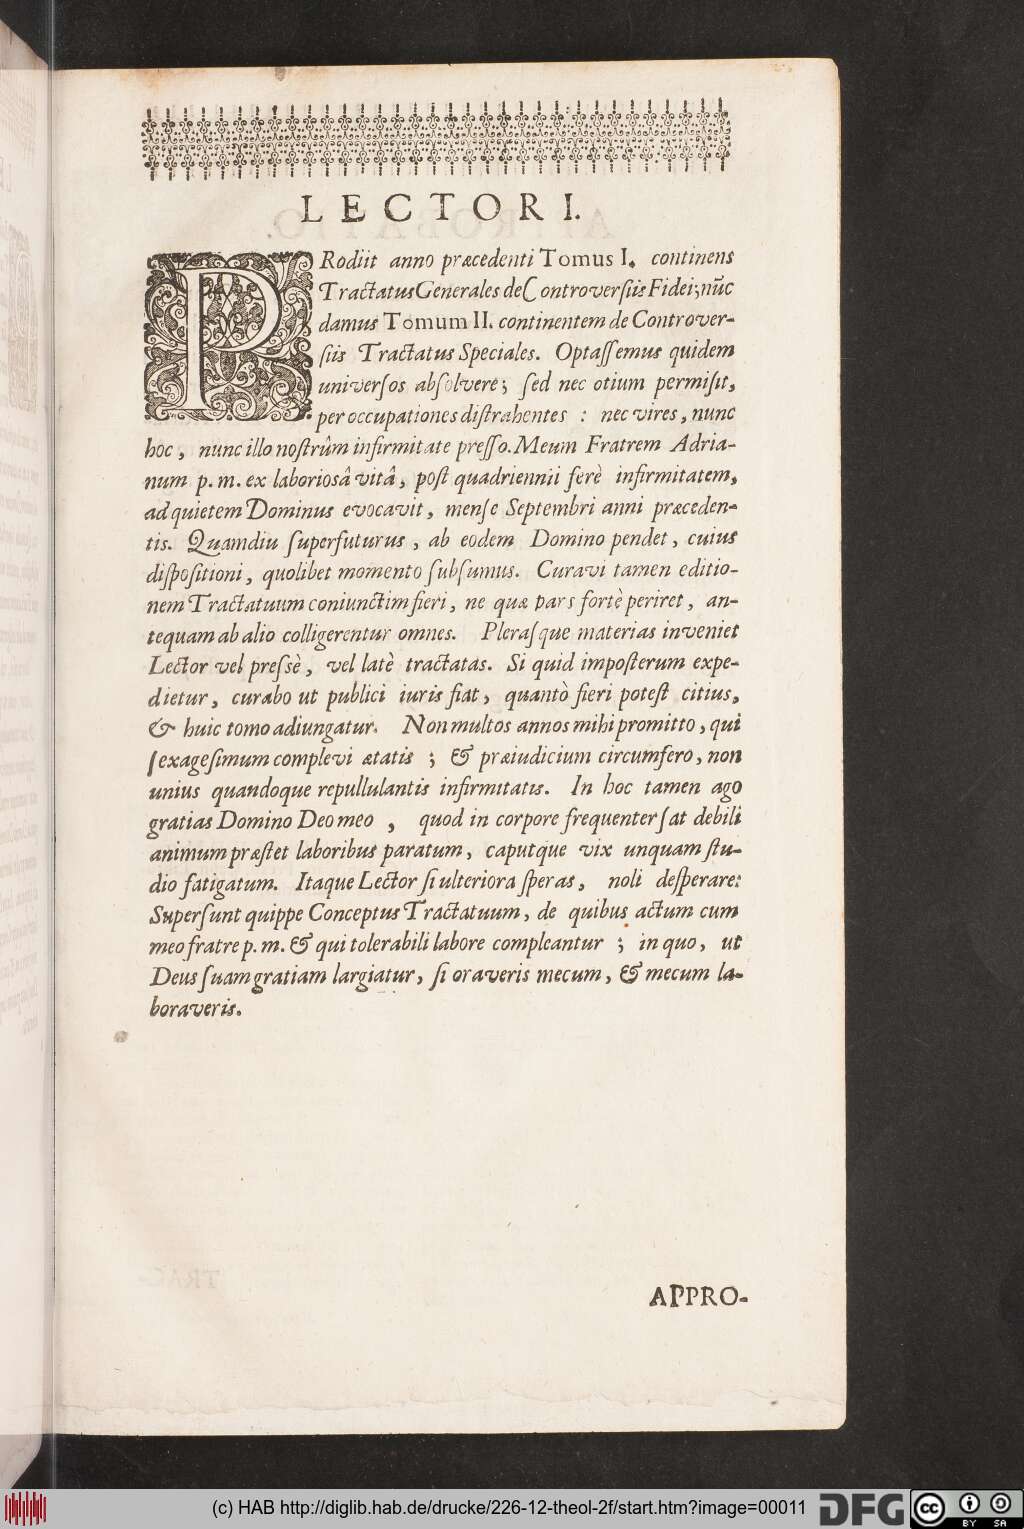 LECTORI.
PRodiit anno præcedenti Tomus I. continens
Tractatus Generales de Controversiis Fidei; nūc
damus Tomum II. continentem de Controver-
siis Tractatus Speciales. Optassemus quidem
universos absolvere; sed nec otium permisit,
per occupationes distrahentes : nec vires, nunc
hoc, nunc illo nostrûm infirmitate presso. Meum Fratrem Adria-
num p. m. ex laboriosâ vitâ, post quadriennii ferè infirmitatem,
ad quietem Dominus evocavit, mense Septembri anni præceden-
tis. Quamdiu superfuturus, ab eodem Domino pendet, cuius
dispositioni, quolibet momento subsumus. Curavi tamen editio-
nem Tractatuum coniunctim fieri, ne quæ pars fortè periret, an-
tequam ab alio colligerentur omnes. Plerasque materias inveniet
Lector vel pressè, vel latè tractatas. Si quid imposterum expe-
dietur, curabo ut publici iuris fiat, quantò fieri potest citius,
& huic tomo adiungatur. Non multos annos mihi promitto, qui
sexagesimum complevi ætatis ; & præiudicium circumfero, non
unius quandoque repullulantis infirmitatis. In hoc tamen ago
gratias Domino Deo meo , quod in corpore frequenter sat debili
animum præstet laboribus paratum, caputque vix unquam stu-
dio fatigatum. Itaque Lector si ulteriora speras, noli desperare:
Supersunt quippe Conceptus Tractatuum, de quibus actum cum
meo fratre p. m. & qui tolerabili labore compleantur ; in quo, ut
Deus suam gratiam largiatur, si oraveris mecum, & mecum la-
boraveris.
APPRO-
(c) HAB http://diglib.hab.de/drucke/226-12-theol-2f/start.htm?image=00011
DFG
cc
BY SA